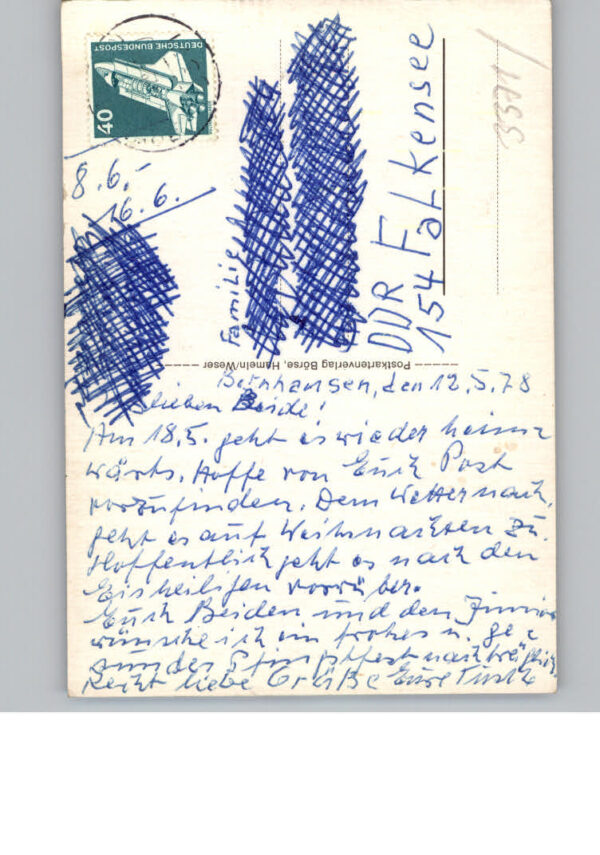 DEUTSCHE BUNDESPOST
40
8.6.-
16.6.
Familie
DDR
154 Falkensee
5571
Postkartenverlag Börse, Hameln/Weser
den 12.5.78
lieben Beide!
Am 18.5. geht es wieder heim-
wärts. Hoffe von Euch Post
vorzufinden. Dem Wetter nach,
geht es auf Weihnachten zu.
Hoffentlich geht es nach den
Eisheiligen vorrüber.
Euch Beiden und den Junior
wünsche ich ein frohes u. ge-
sundes Pfingstfest nachträglich
Recht liebe Grüße Eure